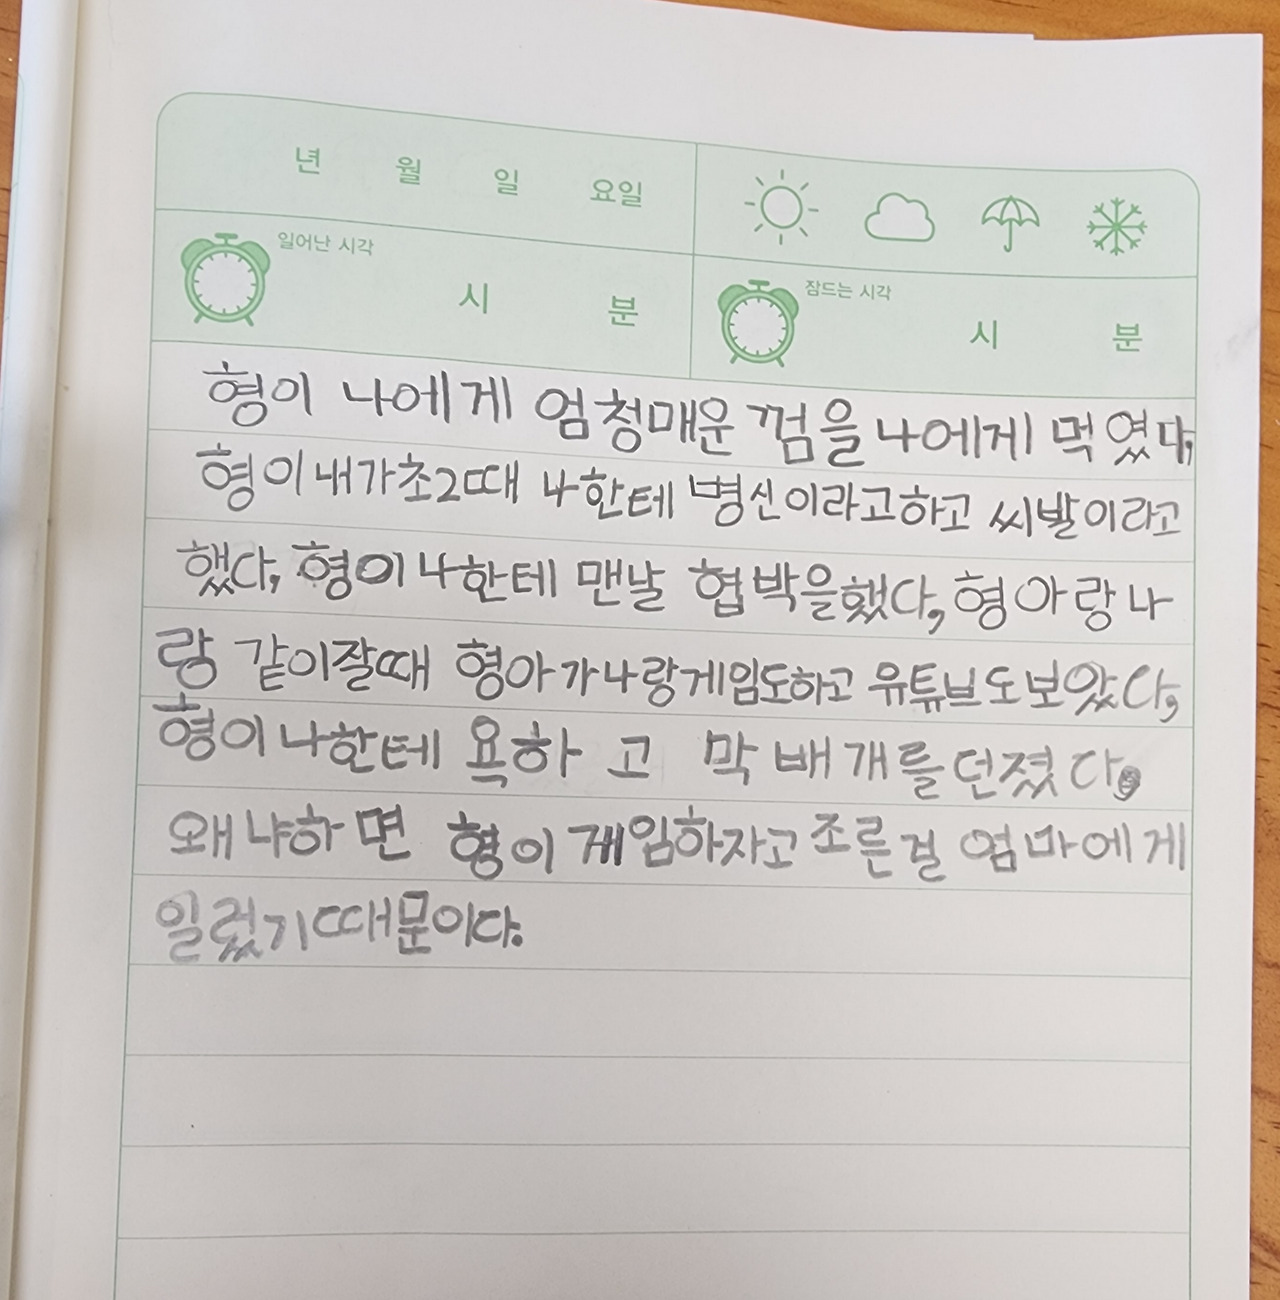 년 월 일 요일
일어난 시각 시 분 잠드는 시각 시 분
형이 나에게 엄청매운 껌을 나에게 먹였다,
형이내가초2때 나한테 병신이라고하고 씨발이라고
했다, 형이나한테 맨날 협박을했다, 형아랑나
랑 같이잘때 형아가나랑게임도하고 유튜브도보았다,
형이나한테 욕하고 막 배개를던졌다.
왜냐하면 형이게임하자고조른걸 엄마에게
일렀기때문이다.